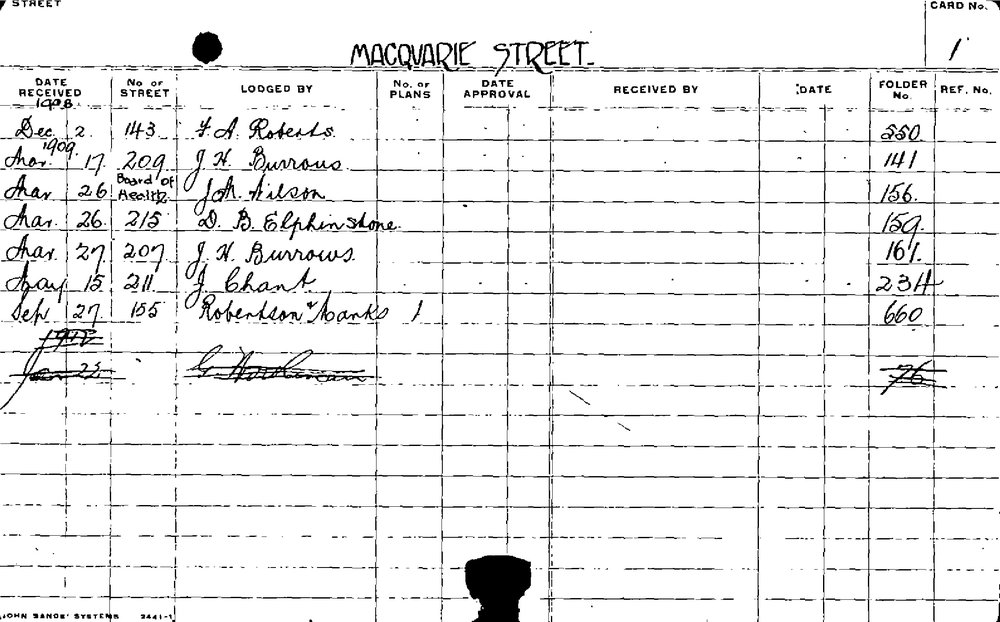 STREET CARD No.
MACQUARIE STREET. 1
DATE RECEIVED No. OF STREET LODGED BY No. OF PLANS DATE APPROVAL RECEIVED BY DATE FOLDER No. REF. No.
1908.
Dec 2. 143 F A. Roberts. 550.
1909.
Mar. 17. 209 J H. Burrows. 141
Mar 26 Board of Health. J M. Wilson 156.
Mar. 26. 215 D. B. Elphinstone. 159.
Mar. 27 207 J. H. Burrows. 161.
May 15 211 J Chant 234
Sep 27. 155 Robertson & Marks 1 660
1912
Jan 23. G. 76
JOHN SANDS' SYSTEMS 2441-1